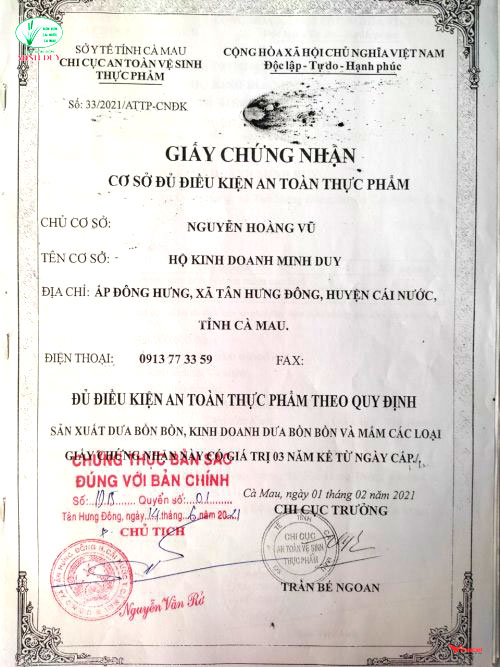 MINH DUY
SỞ Y TẾ TỈNH CÀ MAU
CHI CỤC AN TOÀN VỆ SINH
THỰC PHẨM
CỘNG HÒA XÃ HỘI CHỦ NGHĨA VIỆT NAM
Độc lập - Tự do - Hạnh phúc
Số: 33/2021/ATTP-CNĐK
GIẤY CHỨNG NHẬN
CƠ SỞ ĐỦ ĐIỀU KIỆN AN TOÀN THỰC PHẨM
CHỦ CƠ SỞ: NGUYỄN HOÀNG VŨ
TÊN CƠ SỞ: HỘ KINH DOANH MINH DUY
ĐỊA CHỈ: ẤP ĐÔNG HƯNG, XÃ TÂN HƯNG ĐÔNG, HUYỆN CÁI NƯỚC,
TỈNH CÀ MAU.
ĐIỆN THOẠI: 0913 77 33 59 FAX:
ĐỦ ĐIỀU KIỆN AN TOÀN THỰC PHẨM THEO QUY ĐỊNH
SẢN XUẤT DƯA BỒN BỒN, KINH DOANH DƯA BỒN BỒN VÀ MẮM CÁC LOẠI
GIẤY CHỨNG NHẬN NÀY CÓ GIÁ TRỊ 03 NĂM KỂ TỪ NGÀY CẤP./.
CHỨNG THỰC BẢN SAO
ĐÚNG VỚI BẢN CHÍNH
Số: Quyển số: 01
Tân Hưng Đông, ngày 14 tháng 6 năm 2021
CHỦ TỊCH
Nguyễn Văn Rở
Cà Mau, ngày 01 tháng 02 năm 2021
CHI CỤC TRƯỞNG
CHI CỤC
AN TOÀN VỆ SINH
THỰC PHẨM
TRẦN BÉ NGOAN